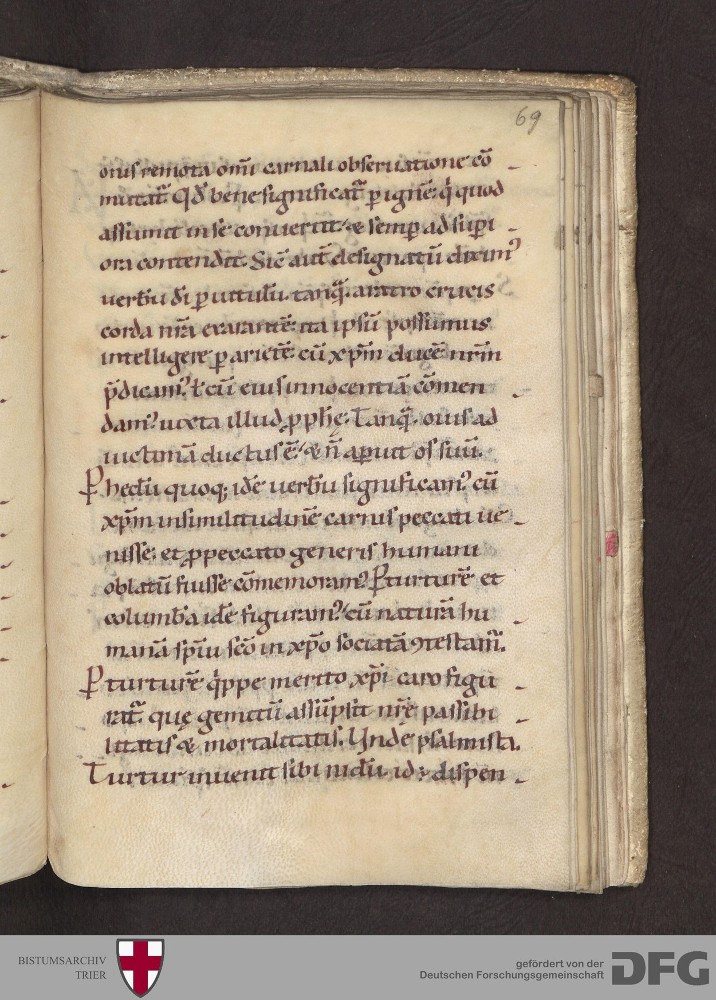 69
oius remota om̄i carnali obseruatione cō
mutat᷑. Qd̄ bene significat᷑ ꝑ ignē; q̇ quod
assumit in se conuertit; & semꝑ ad suꝑi
ora contendit. Sic̄ aut̄ designatū dixim᷒
uerbū dī ꝑ uitulū. tanq̄ aratro crucis
corda nr̄a exarantē; ita ipsū possumus
intelligere ꝑ arietē. cū xp̄m ducē nr̄m
p̄dicam᷒. ł cū eius innocentiā cōmen
dam᷒ iuxta illud ꝓph̄ę. Tanq̄ ouis ad
uictimā ductus ē; & n̄ aꝑuit os suū.
Ꝑ hedū quoq; idē uerbū significam᷒. cū
xp̄m in similitudinē carnis peccati ue
nisse; et ꝓ peccato generis humani
oblatū fuisse cōmemoram᷒. Ꝑ turturē et
columbā idē figuram᷒; cū naturā hu
manā sp̄iu sc̄o in xp̄o sociatā ꝯtestam᷑.
Ꝑ turturē q̇ppe merito xp̄i caro figu
rat᷑. que gemitū assūpsit nr̄e passibi
litatis & mortalitatis. Unde psalmista.
Turtur inuenit sibi nidū. id ÷ dispen
BISTUMSARCHIV
TRIER
gefördert von der
Deutschen Forschungsgemeinschaft
DFG